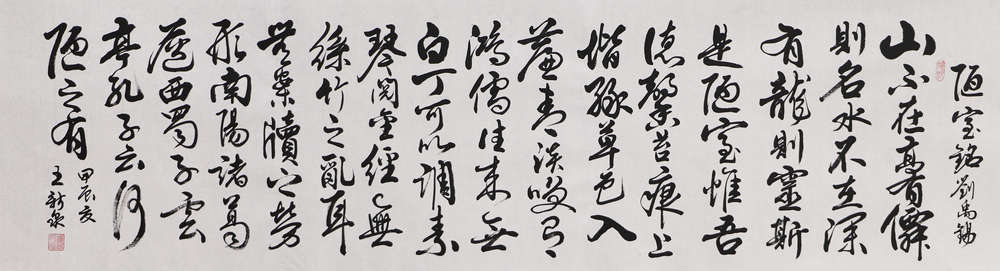 陋室銘 劉禹錫
山不在高有僊
則名水不在深
有龍則靈斯
是陋室惟吾
德馨苔痕上
堦綠草色入
簾青談咲有
鴻儒往来無
白丁可以調素
琴閱金經無
絲竹之亂耳
無案牘之勞
形南陽諸葛
廬西蜀子雲
亭孔子云何
陋之有
甲辰夏
王新泉